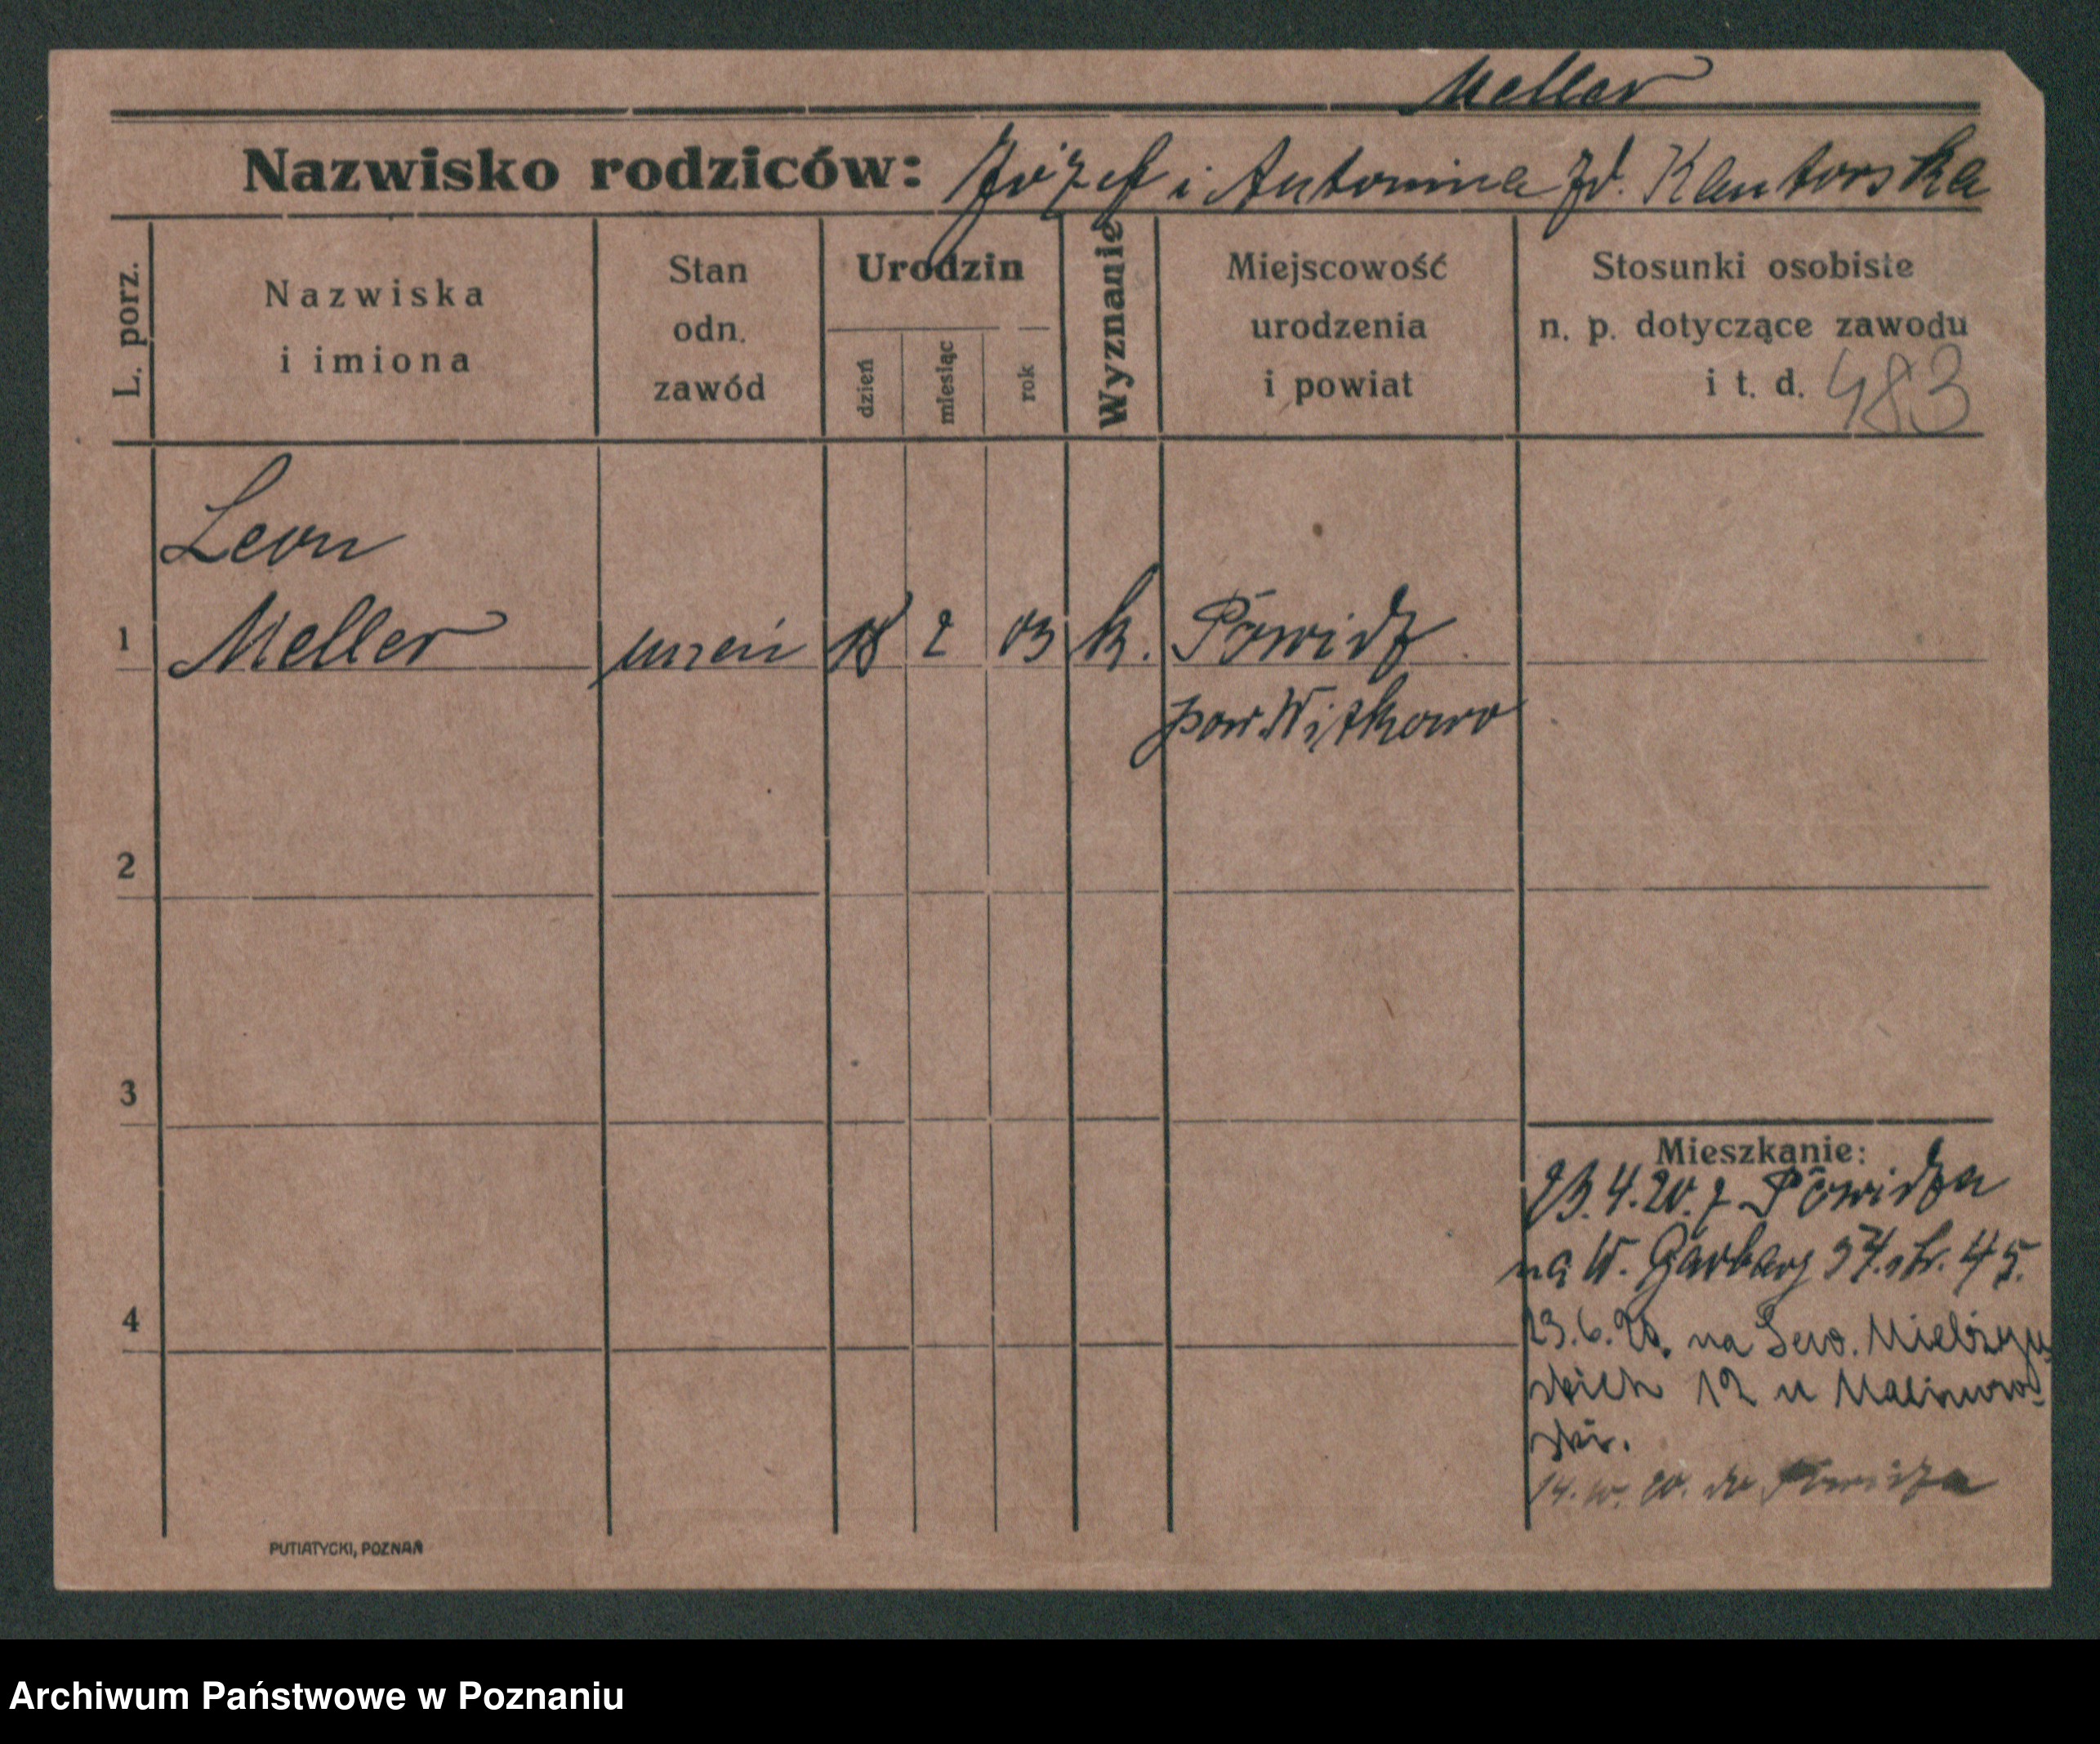 Meller
Nazwisko rodziców: Józef i Antonina zd. Kantorska
L. porz.
Nazwiska
i imiona
Stan
odn.
zawód
Urodzin
dzień
miesiąc
rok
Wyznanie
Miejscowość
urodzenia
i powiat
Stosunki osobiste
n. p. dotyczące zawodu
i t. d. 483
Leon
1 Meller uczeń 18 2 03 k. Powidz
pow. Witkowo
2
3
4
Mieszkanie:
23.4.20. z Powidza
na W. Garbary 54. str. 45.
23.6.20. na Sew. Mielżyń-
skich 12 u Malinow-
ski.
14.10.20. do Powidza
PUTIATYCKI, POZNAŃ
Archiwum Państwowe w Poznaniu